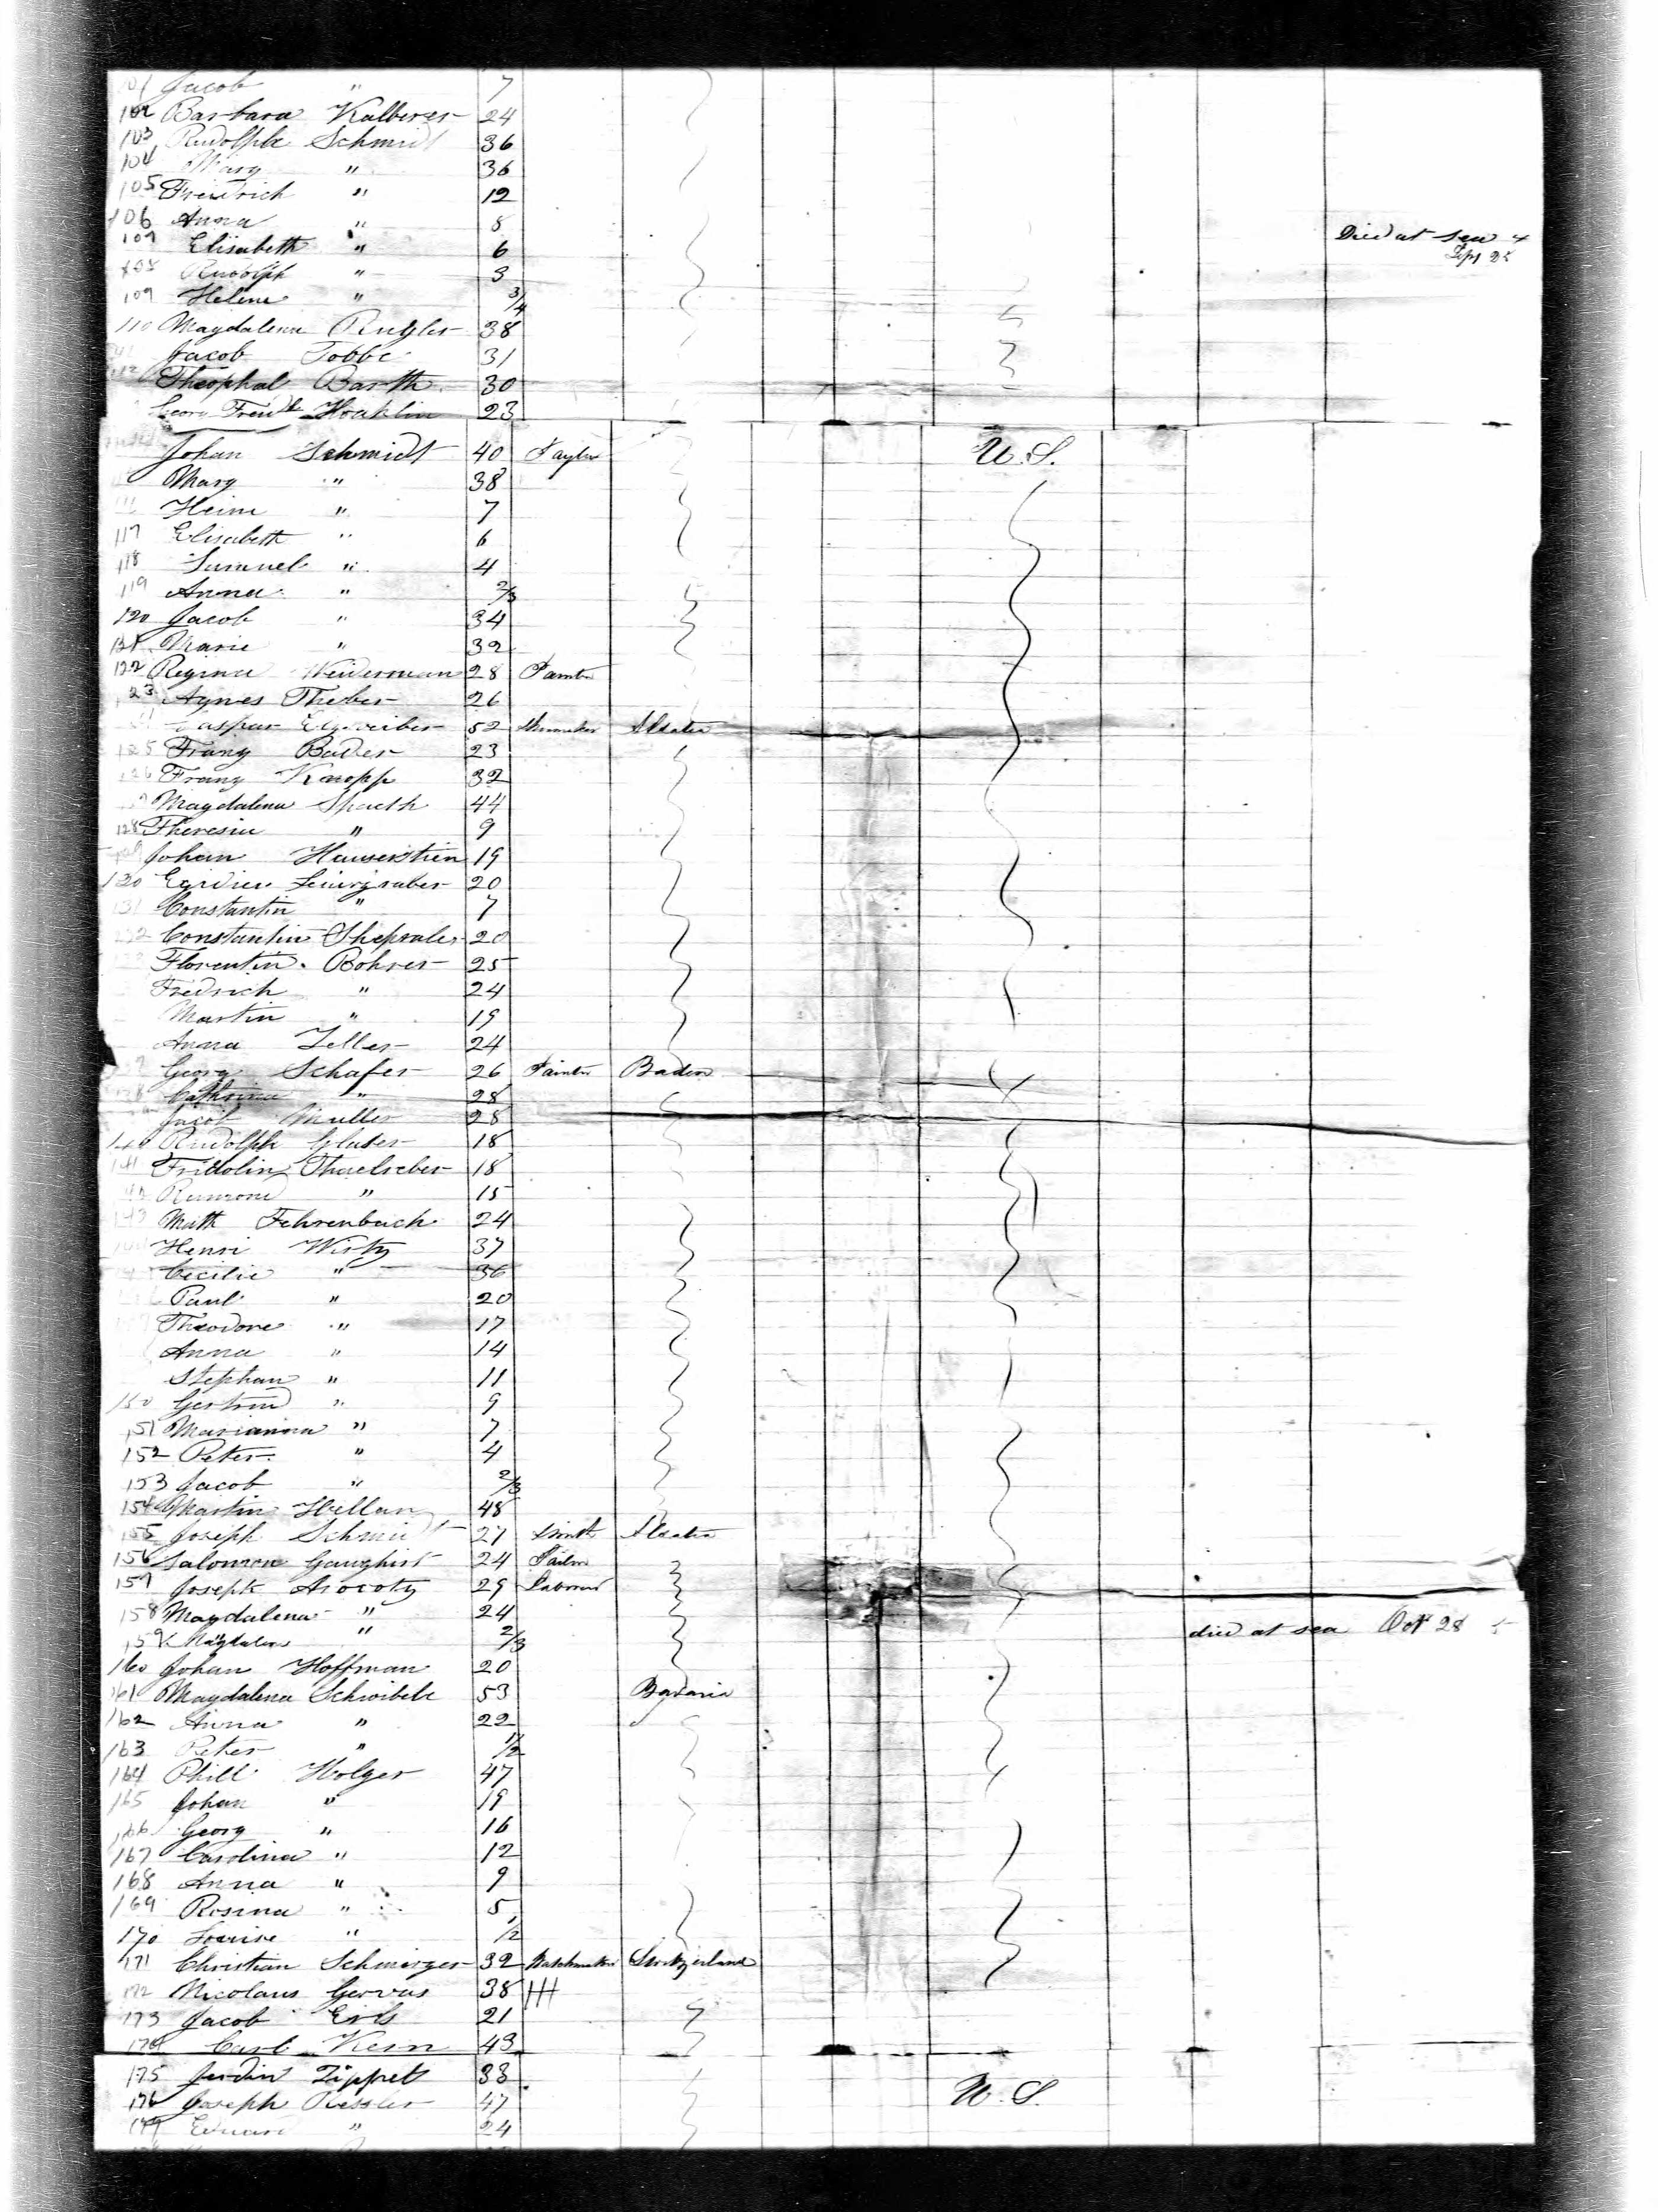 101 Jacob " 7
102 Barbara Kalberer 24
103 Rudolph Schmidt 36
104 Mary " 36
105 Friedrich " 12
106 Anna " 8
107 Elisabeth " 6 Died at sea 4
108 Rudolph " 3 Sept 25
109 Helene " 3/4
110 Magdalena 38
Jacob Tobbe 31
Theophal Barth 30
Georg 23
Johan Schmidt 40 Taylor U.S.
Mary " 38
Heinr " 7
117 Elisabeth " 6
118 Samuel " 4
119 Anna " 2/3
120 Jacob " 34
121 Marie " 32
122 Regina Weiderman 28
123 Agnes Theber 26
Caspar 52 Shomaker Alsatia
125 Franz Bader 23
126 Franz Knopp 32
Magdalena Spaeth 44
128 Theresia " 9
Johan Hauserstien 19
130 20
131 Constantin " 7
132 Constantin 20
Florentin Bohrer 25
Fredrich " 24
Martin " 19
Anna Zeller 24
Georg Schafer 26 Painter Baden
Cathrina " 28
Jacob Muller 28
140 Rudolph Glaser 18
141 Fridolin 18
" 15
143 Math Fehrenbach 24
Henri Wirtz 37
Cecilie " 36
Paul " 20
Theodore " 17
Anna " 14
Stephan " 11
150 Gertrud " 9
151 Marianna " 7
152 Peter " 4
153 Jacob " 2/3
154 Martin Hellan 48
155 Joseph Schmidt 27 Smith Alsatia
156 Salomon 24 Tailor
157 Joseph 29 Laborer
158 Magdalena " 24
159 Magdalena " 2/3 died at sea Oct 28 5
160 Johan Hoffman 20
161 Magdalena Schwibele 53 Bavaria
162 Anna " 22
163 Peter " 1/2
164 Phill Holger 47
165 Johan " 19
166 Georg " 16
167 Carolina " 12
168 Anna " 9
169 Rosina " 5
170 Louise " 1/2
171 Christian 32 Watchmaker Switzerland
172 Nicolaus Gervas 38
173 Jacob Erls 21
174 Carl Kern 43
175 Zippret 33
176 Joseph Kessler 47 U.S.
177 Eduard " 24